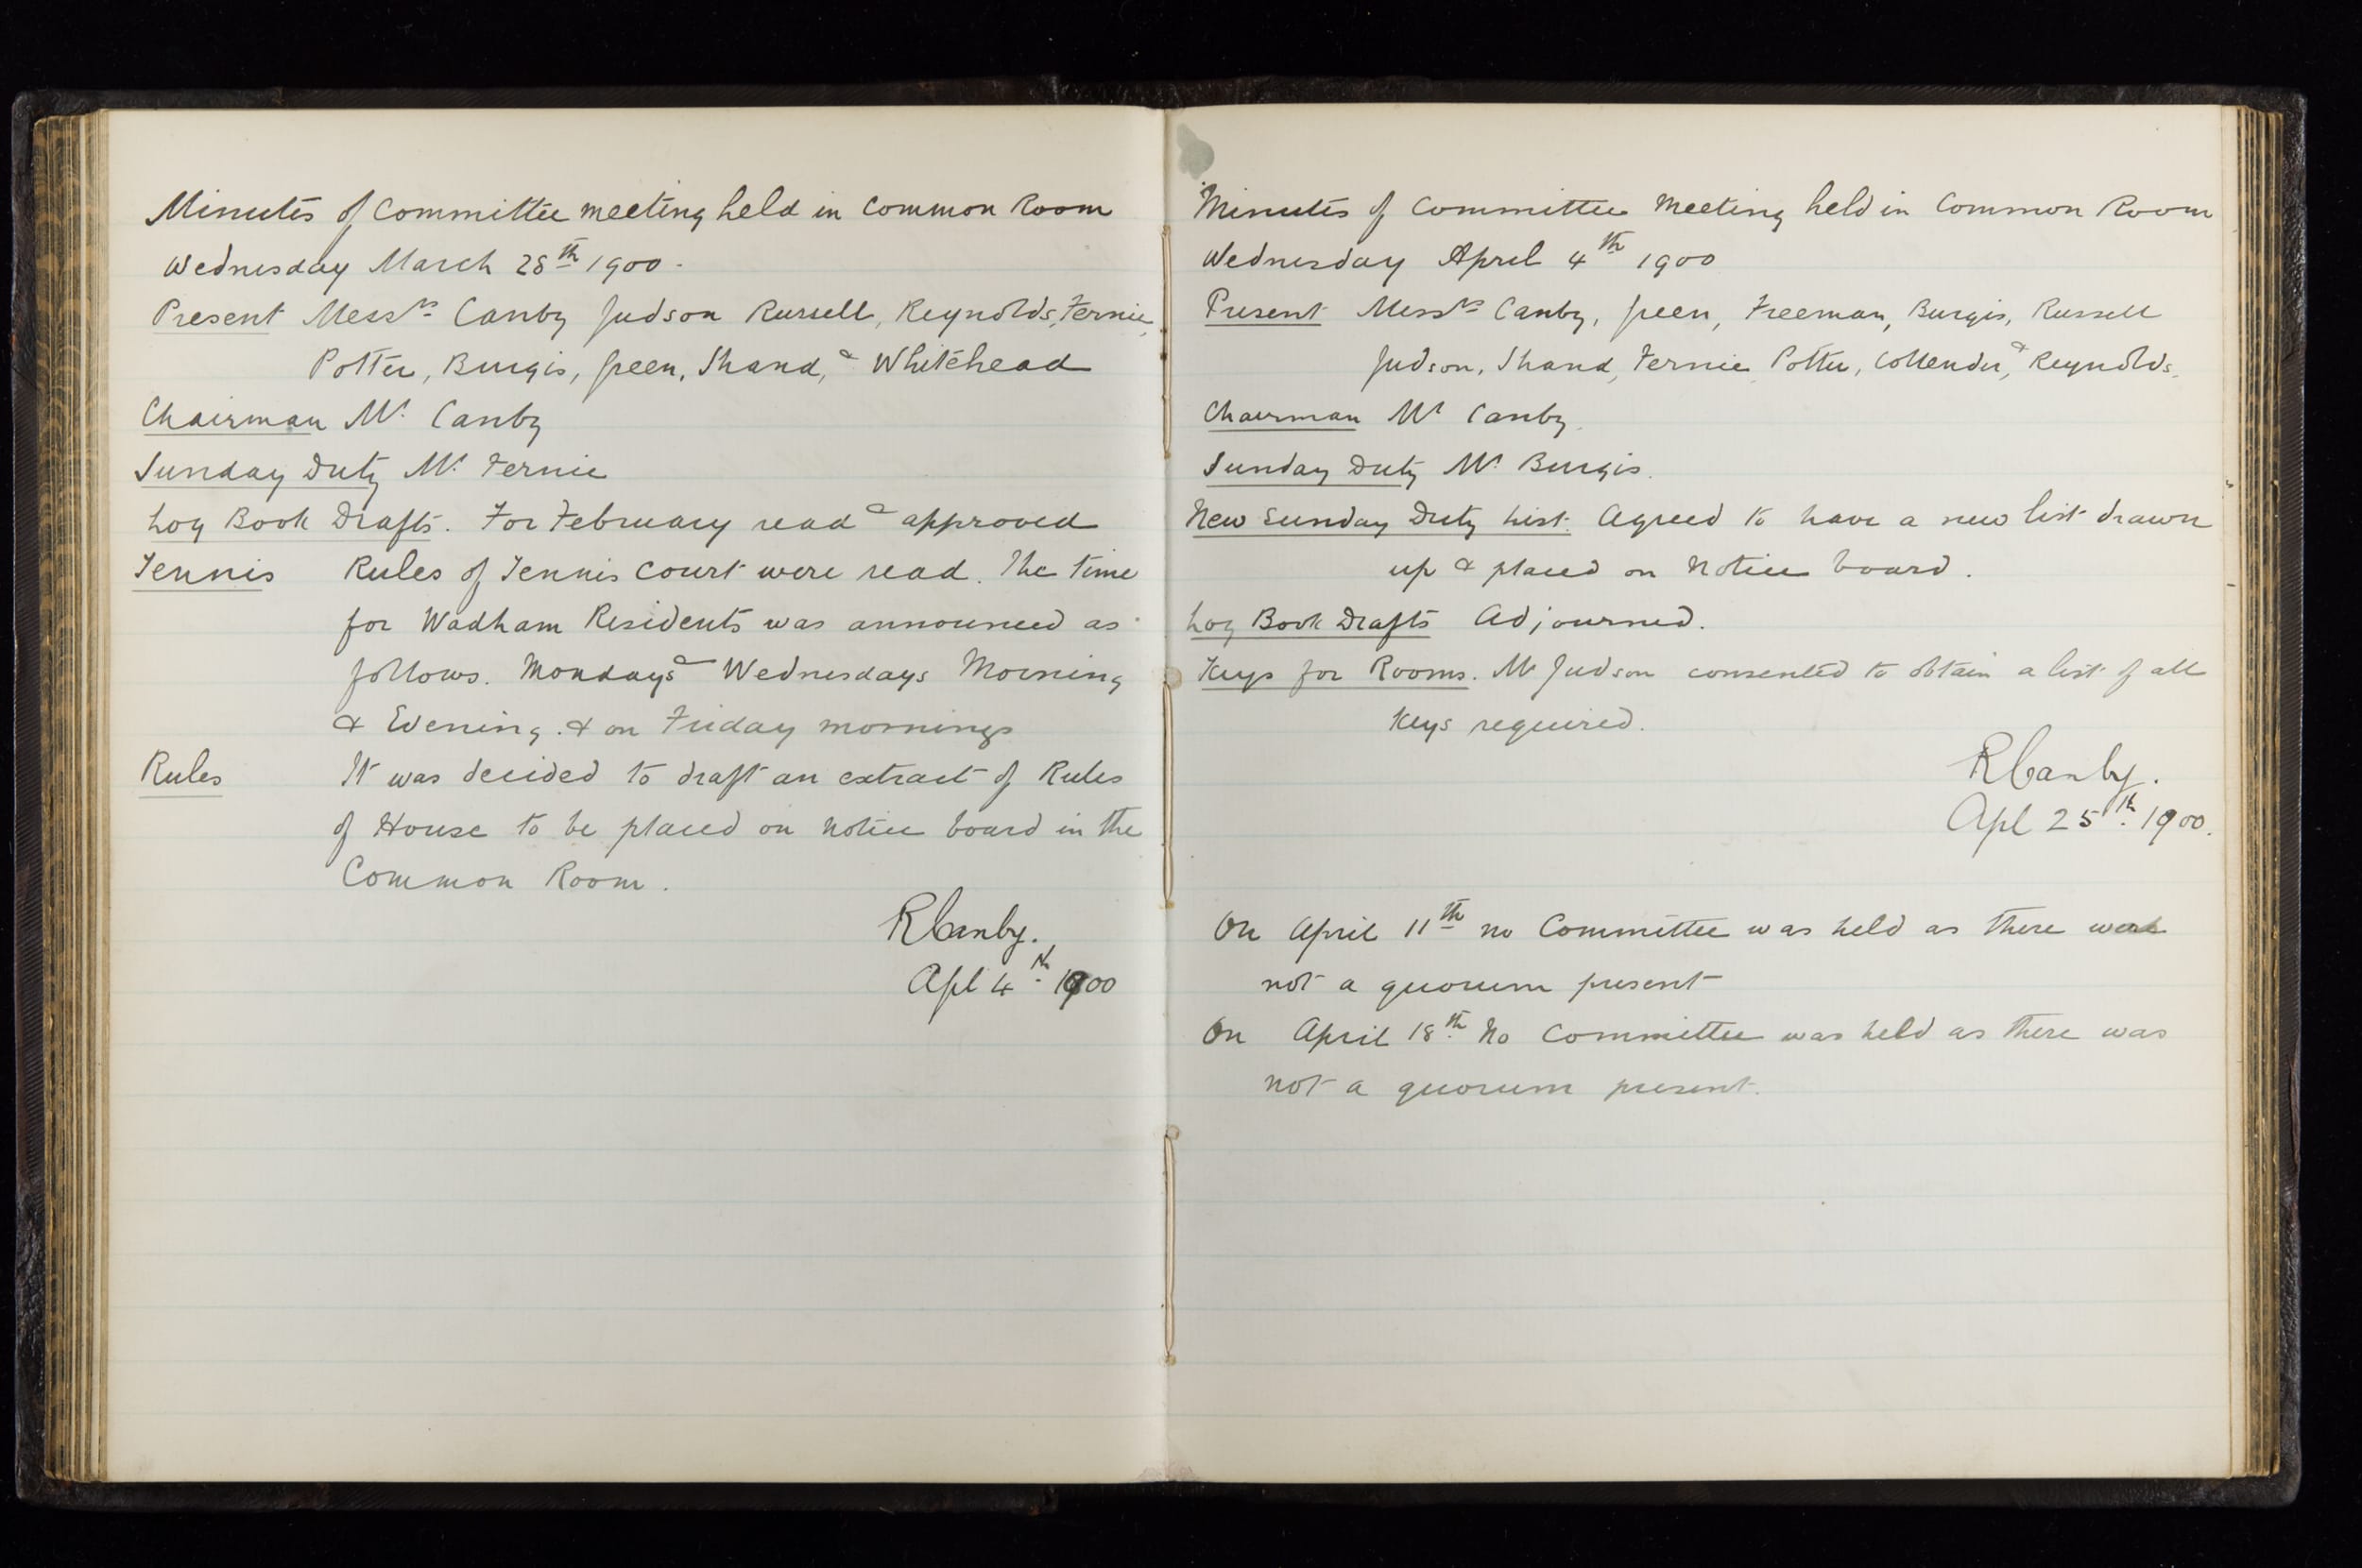 Minutes of Committee meeting held in Common Room
Wednesday March 28th 1900.
Present Messrs Canby Judson Russell, Reynolds, Fernie,
Potter, Burgis, Green, Shand, & Whitehead
Chairman Mr. Canby
Sunday Duty Mr. Fernie
Log Book Drafts. For February read & approved
Tennis Rules of Tennis Court were read. The time
for Wadham Residents was announced as
follows. Mondays & Wednesdays Morning
& Evening. & on Friday mornings
Rules It was decided to draft an extract of Rules
of House to be placed on notice board in the
Common Room.
RCanby.
Apl 4th. 1900
Minutes of Committee Meeting held in Common Room
Wednesday April 4th 1900
Present Messrs Canby, Green, Freeman, Burgis, Russell
Judson, Shand, Fernie Potter, Collender, & Reynolds.
Chairman Mr Canby.
Sunday Duty Mr. Burgis.
New Sunday Duty List. Agreed to have a new list drawn
up & placed on Notice board.
Log Book Drafts Adjourned.
Keys for Rooms. Mr Judson consented to obtain a list of all
Keys required.
RCanby.
Apl 25th. 1900.
On April 11th no Committee was held as there was
not a quorum present
On April 18th. No Committee was held as there was
not a quorum present.